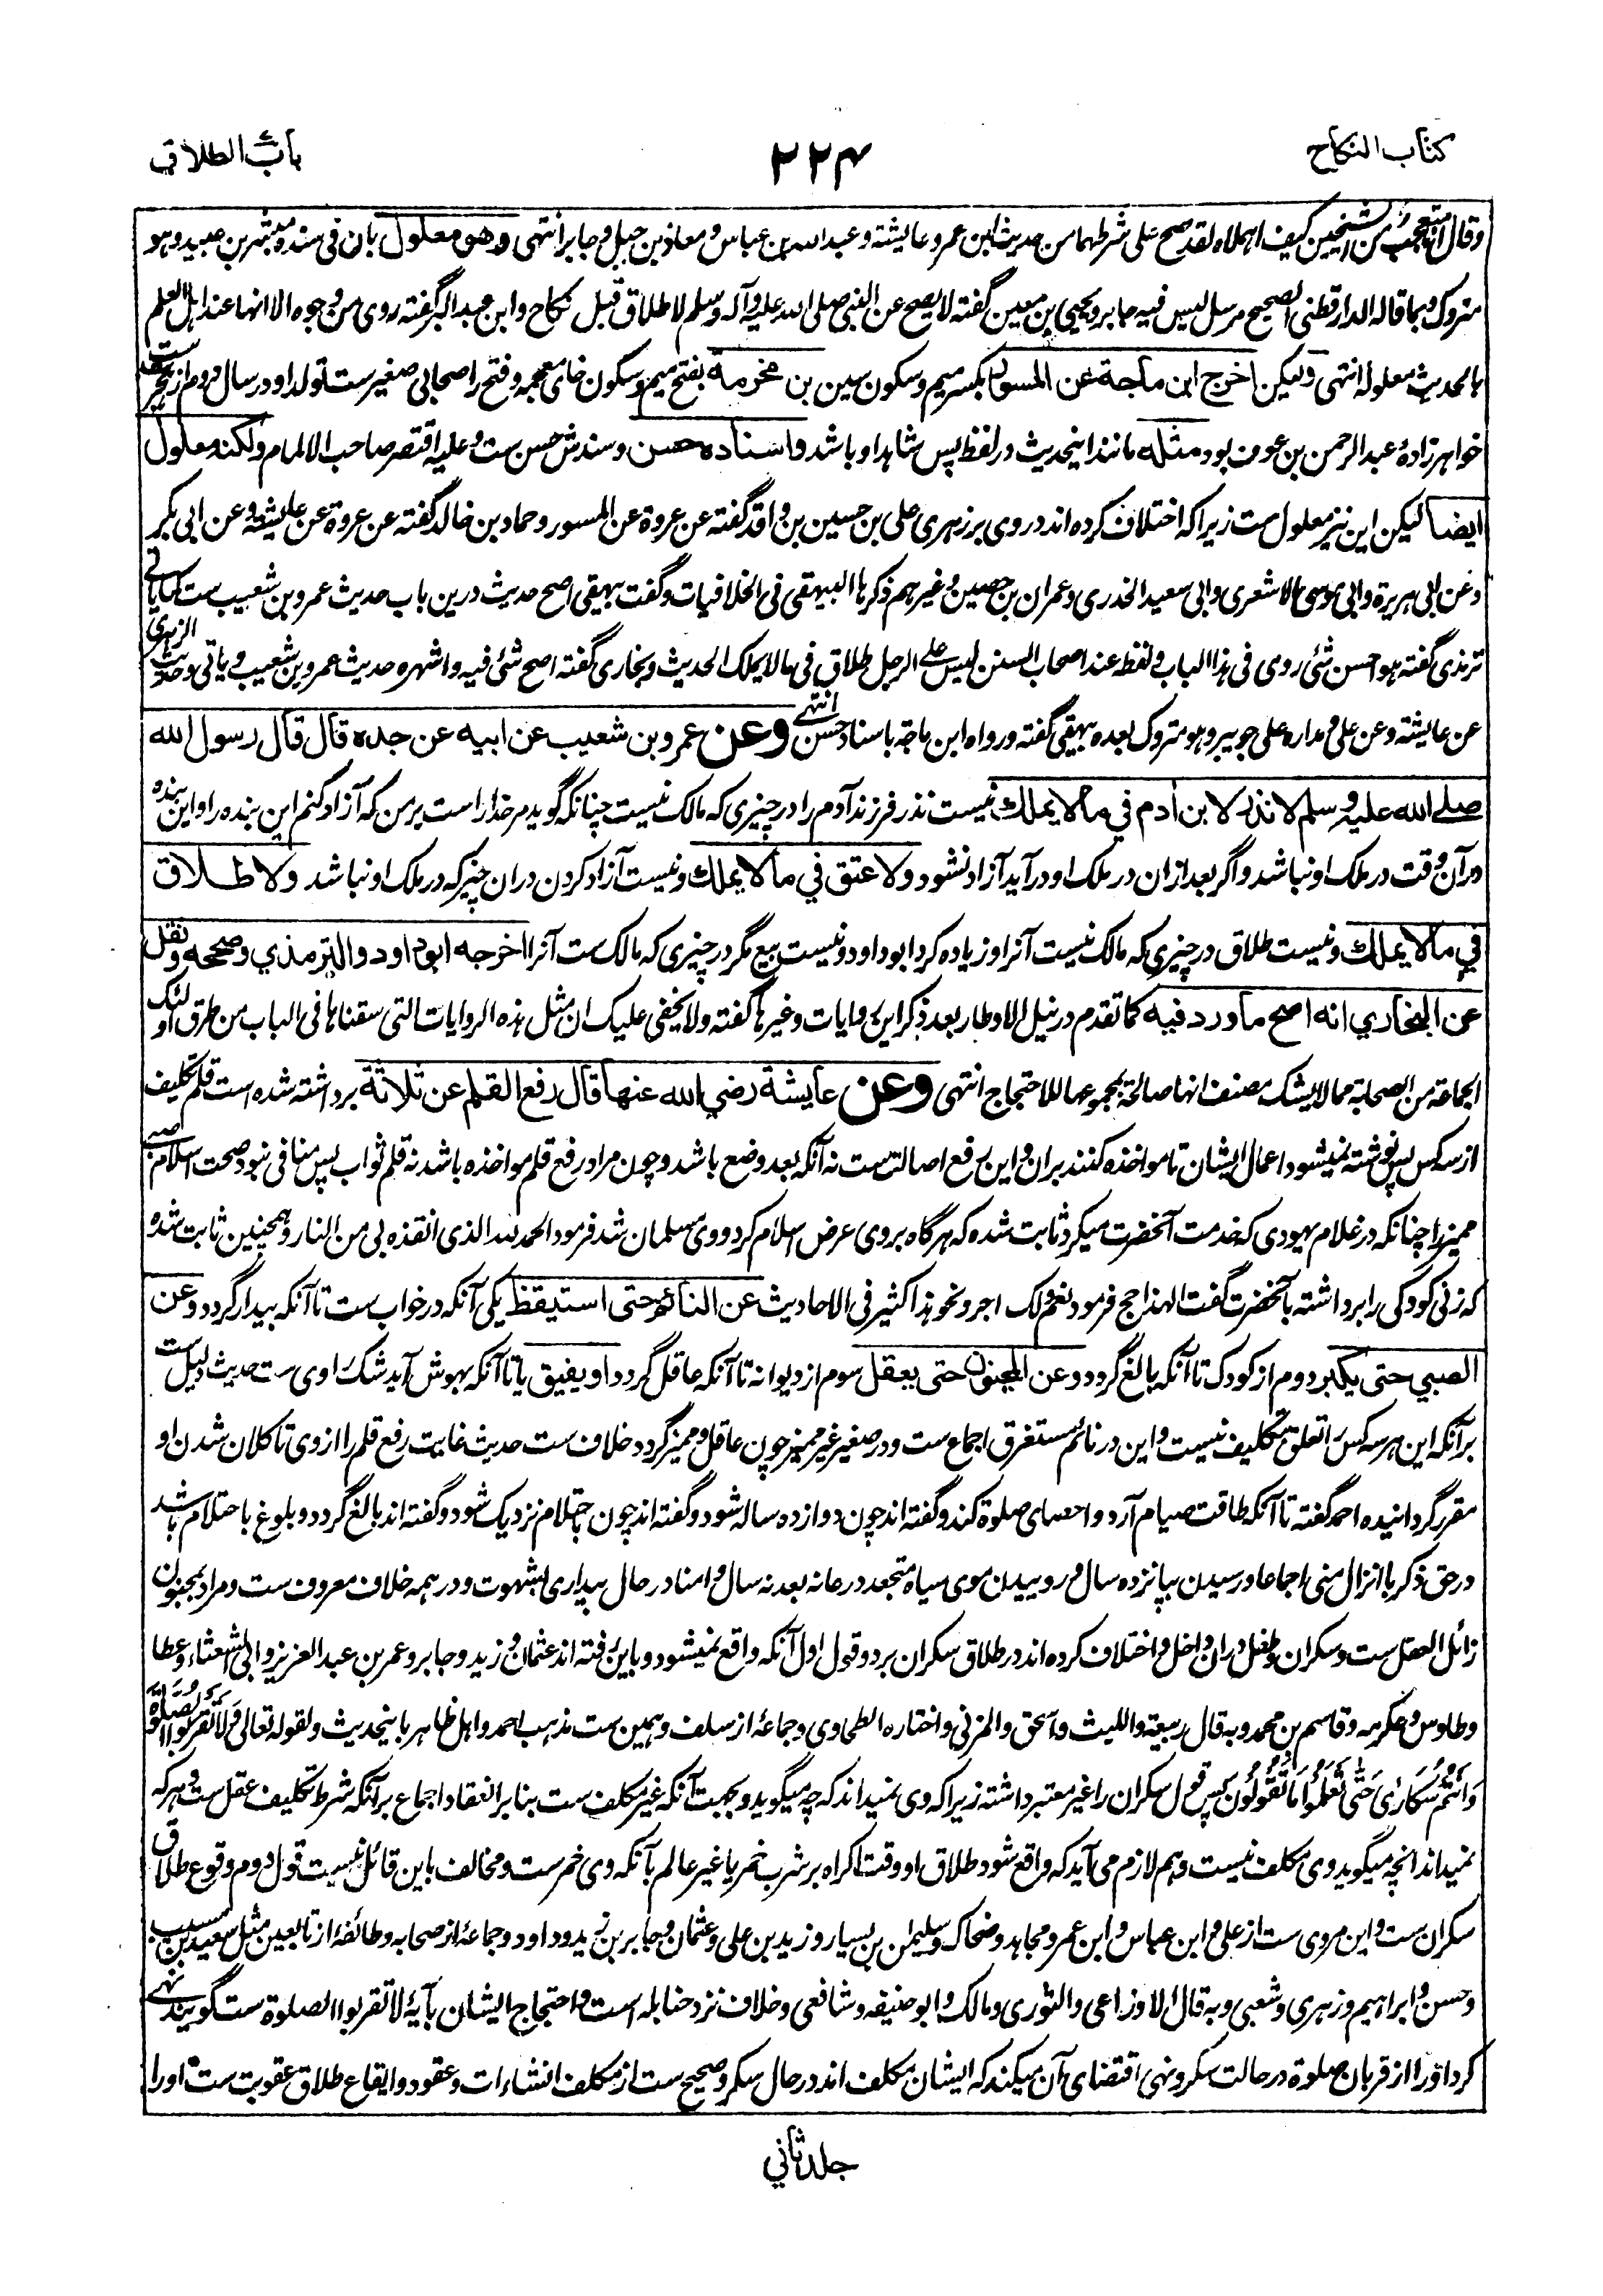 کتاب النکاح
۲۲۴
باب الطلاق
وقال انا متعجب من الشیخین کیف اهملاه لقد صح علی شرطهما من حدیث ابن عمر و عایشته و عبد الله بن عباس و معاذ بن جبل و جابر انتهی وهو معلول بان فی سنده مبشر بن عبید و هو
متروک و بما قاله الدارقطنی الصحیح مرسل لیس فیه جابر و یحیی بن معین گفته لا یصح عن النبی صلی الله علیه و آله و سلم لا طلاق قبل نکاح و ابن عبد البر گفته روی من وجوه الا انها عند اهل العلم
بالحدیث معلوله انتهی ولیکن اخرج ابن ماجة عن المسور بکسر میم و سکون سین بن مخرمة بفتح میم و سکون خای معجمه و فتح را صحابی صغیر ست تولد او در سال دوم از هجرت
خواهرزادهٔ عبد الرحمن بن عوف بود مثله مانند این حدیث در لفظ پس شاهد او باشد واسناده حسن و سندش حسن ست و علیه اقتصر صاحب الالمام ولکنه معلول
ایضا لیکن این نیز معلول ست زیراکه اختلاف کرده اند در وی بر زهری علی بن حسین بن واقد گفته عن عروة عن المسور و حماد بن خالد گفته عن عروة عن عایشه و عن ابی بکر
و عن ابی هریرة و ابی موسی الاشعری و ابی سعید الخدری و عمران بن حصین و غیرهم ذکرها البیهقی فی الخلافیات و گفت بیهقی اصح حدیث درین باب حدیث عمرو بن شعیب ست کما یاتی
ترمذی گفته هو احسن شئ روی فی هذا الباب و لفظ عند اصحاب السنن لیس علی الرجل طلاق فی ما لا یملک الحدیث و بخاری گفته اصح شئ فیه و اشهره حدیث عمرو بن شعیب و یاتی و حدیث الزهری
عن عایشته و عن علی و مداره علی جویبر و هو متروک بعده بیهقی گفته و رواه ابن ماجة باسناد حسن انتهی وعن عمرو بن شعیب عن ابیه عن جده قال قال رسول الله
صلے الله علیه وسلم لا نذر لابن ادم في ما لا یملك نیست نذر فرزند آدم را در چیزی که مالک نیست چنانکه گوید مر خدا راست بر من که آزاد کنم این بنده را و این بنده
در آن وقت در ملک او نباشد و اگر بعد ازان در ملک او در آید آزاد نشود ولا عتق في ما لا یملك و نیست آزاد کردن دران چیز که در ملک او نباشد ولا طلاق
في ما لا یملك و نیست طلاق در چیزی که مالک نیست آنرا و زیاده کرد ابو داود و نیست بیع مگر در چیزی که مالک ست آنرا اخرجه ابوداود والترمذي وصححه ونقل
عن البخاري انه اصح ما ورد فیه کما تقدم در نیل الاوطار بعد ذکر این روایات و غیرها گفته و لا یخفی علیک ان مثل هذه الروایات التی سقناها فی الباب من طرق اولئک
الجماعة من الصحابة مما لا یشک مصنف انها صالحة بمجموعها للاحتجاج انتهی وعن عایشة رضي الله عنها قال رفع القلم عن ثلاثة برداشته شده است قلم تکلیف
از سه کس پس نوشته نمیشود اعمال ایشان تا مواخذه کنند بران و این رفع اصالت ست نه آنکه بعد وضع باشد و چون مراد رفع قلم مواخذه باشد نه قلم ثواب پس منافی نبود صحت اسلام صبی
ممیز را چنانکه در غلام یهودی که خدمت آنحضرت میکرد ثابت شده که هرگاه بروی عرض اسلام کرد و وی مسلمان شد فرمود الحمد لله الذی انقذه بی من النار و همچنین ثابت شده
که زنی کودکی را برداشته بآنحضرت گفت الهذا حج فرمود نعم و لک اجر و نحو هذا کثیر فی الاحادیث عن النائم حتی استیقظ یکی آنکه در خواب ست تا آنکه بیدار گردد وعن
الصبي حتی یکبر دوم از کودک تا آنکه بالغ گردد وعن المجنون حتی یعقل سوم از دیوانه تا آنکه عاقل گردد او یفیق یا تا آنکه بهوش آید شک راوی ست حدیث دلیل ست
برآنکه این هر سه کس را تعلق تکلیف نیست و این در نائم مستغرق اجماع ست و در صغیر غیر ممیز چون عاقل و ممیز گردد خلاف ست حدیث غایت رفع قلم را از وی تا کلان شدن او
مقرر گردانیده احمد گفته تا آنکه طاقت صیام آرد و احصای صلوة کند و گفته اند چون دوازده ساله شود و گفته اند چون باحتلام نزدیک شود و گفته اند بالغ گردد و بلوغ باحتلام باشد
در حق ذکر با انزال منی اجماعا و رسیدن بپانزده سال و روییدن موی سیاه متجعد در عانه بعد نه سال و امنا در حال بیداری بشهوت و در همه خلاف معروف ست و مراد بمجنون
زائل العقل ست و سکران و طفل دران داخل و اختلاف کرده اند در طلاق سکران بر دو قول اول آنکه واقع نمیشود و باین رفته اند عثمان و زید و جابر و عمر بن عبد العزیز و ابی الشعثاء و عطا
و طاوس و عکرمه و قاسم بن محمد و به قال ربیعة و اللیث و اسحق و المزنی و اختاره الطحاوی و جماعهٔ از سلف و همین ست مذهب احمد و اهل ظاهر باین حدیث و لقوله تعالی وَلَا تَقْرَبُوا الصَّلٰوةَ
وَاَنْتُمْ سُكَارٰی حَتّٰی تَعْلَمُوْا مَا تَقُوْلُوْنَ پس قول سکران را غیر معتبر داشته زیرا که وی نمیداند که چه میگوید و بجهت آنکه غیر مکلف ست بنا بر انعقاد اجماع برآنکه شرط تکلیف عقل ست و هر که
نمیداند انچه میگوید وی مکلف نیست و هم لازم می آید که واقع شود طلاق او وقت اکراه بر شرب خمر یا غیر عالم بآنکه وی خمر ست و مخالف باین قائل نیست قول دوم وقوع طلاق
سکران ست و این مروی ست از علی و ابن عباس و ابن عمر و مجاهد و ضحاک و سلیمان بن یسار و زید بن علی و عثمان و جابر بن زید و داود و جماعهٔ از صحابه و طائفهٔ از تابعین مثل سعید بن مسیب
و حسن و ابراهیم و زهری و شعبی و به قال الاوزاعی و الثوری و مالک و ابو حنیفه و شافعی و خلاف نزد حنابله است و احتجاج ایشان بآیهٔ لا تقربوا الصلوة ست گویند نهی
کرد او را از قربان صلوة در حالت سکر و نهی اقتضای آن میکند که ایشان مکلف اند در حال سکر و صحیح ست از مکلف انشاءات و عقود و ایقاع طلاق عقوبت ست او را
جلد ثاني